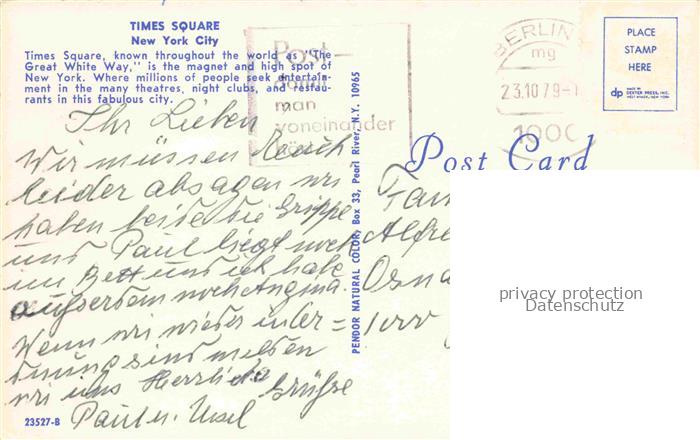 TIMES SQUARE
New York City
Times Square, known throughout the world as "The
Great White Way," is the magnet and high spot of
New York. Where millions of people seek entertain-
ment in the many theatres, night clubs, and restau-
rants in this fabulous city.
Post-
damit
man
voneinander
hört
BERLIN
mg
23.10.79-1
1000
PLACE
STAMP
HERE
dp
MADE BY
DEXTER PRESS, INC.
WEST NYACK, NEW YORK
Post Card
Ihr Lieben
Wir müssen Euch
leider absagen wir
haben beide die Grippe
und Paul liegt noch
im Bett und ich habe
außerdem noch Angina.
Wenn wir wieder in Or=
dnung sind melden
wir uns Herzliche
Grüße
Paul u. Ursel
Fam
Alfre
Osna
1000
PENDOR NATURAL COLOR, Box 33, Pearl River, N.Y. 10965
23527-B
privacy protection
Datenschutz